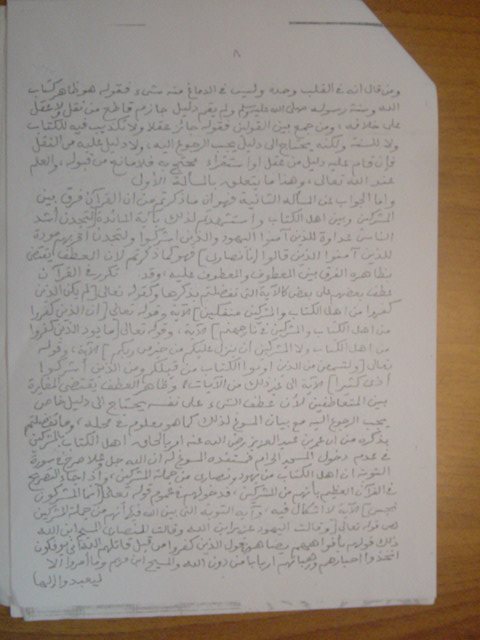 ٨
ومن قال انه في القلب وحده وليس في الدماغ منه شيء فقوله هو ظاهر كتاب
الله وسنة رسوله صلى الله عليه وسلم ولم يقم دليل جازم قاطع من نقل ولا عقل
على خلافه ، ومن جمع بين القولين فقوله جائز عقلا ولا تكذيب فيه للكتاب
ولا للسنة ولكنه يحتاج الى دليل يجب الرجوع اليه ، ولا دليل عليه من النقل
فإن قام عليه دليل من عقل او استقراء محتج به فلا مانع من قبوله ، والعلم
عند الله تعالى ، وهذا ما يتعلق بالمسألة الأولى
واما الجواب عن المسألة الثانية فهو ان ما ذكرتم من ان القرآن فرق بين
المشركين وبين اهل الكتاب واستشهدتم لذلك بآية المائدة [لتجدن اشد
الناس عداوة للذين آمنوا اليهود والذين اشركوا ولتجدن اقربهم مودة
للذين آمنوا الذين قالوا إنا نصارى] فهو كما ذكرتم لأن العطف يقتضي
بظاهره الفرق بين المعطوف والمعطوف عليه ، وقد تكرر في القرآن
عطف بعضهم على بعض كالآية التي تفضلتم بذكرها وكقوله تعالى [لم يكن الذين
كفروا من اهل الكتاب والمشركين منفكين] الآية وقوله تعالى [ان الذين كفروا
من اهل الكتاب والمشركين في نار جهنم] الآية ، وقوله تعالى [ما يود الذين كفروا
من اهل الكتاب ولا المشركين ان ينزل عليكم من خير من ربكم] الآية ، وقوله
تعالى [ولتسمعن من الذين اوتوا الكتاب من قبلكم ومن الذين اشركوا
أذى كثيرا] الآية الى غير ذلك من الآيات ، وظاهر العطف يقتضي المغايرة
بين المتعاطفين لأن عطف الشيء على نفسه يحتاج الى دليل خاص
يجب الرجوع اليه مع بيان المسوغ لذلك كما هو معلوم في محله ، وما تفضلتم
بذكره من ان عمر بن عبد العزيز رضي الله عنه اهل الكتاب بالمشركين
في عدم دخول المسجد الحرام المسوغ له ان الله جل وعلا صرح في سورة
التوبة ان اهل الكتاب من يهود ونصارى من جملة المشركين ، واذا جاء التصريح
في القرآن العظيم بأنهم من المشركين ، فدخولهم في عموم قوله تعالى [انما المشركون
نجس] الآية لا اشكال فيه ، وآية التوبة التي بين الله فيها انهم من جملة المشركين
هي قوله تعالى [وقالت اليهود عزير ابن الله وقالت النصارى المسيح ابن الله
ذلك قولهم بأفواههم يضاهئون قول الذين كفروا من قبل قاتلهم الله انى يؤفكون
اتخذوا احبارهم ورهبانهم اربابا من دون الله والمسيح ابن مريم وما أمروا الا
ليعبدوا إلها